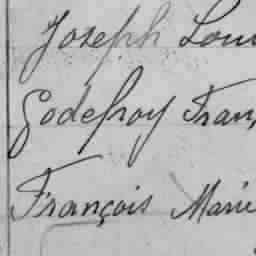 Joseph Loui
Godefroy Fran
François Marie